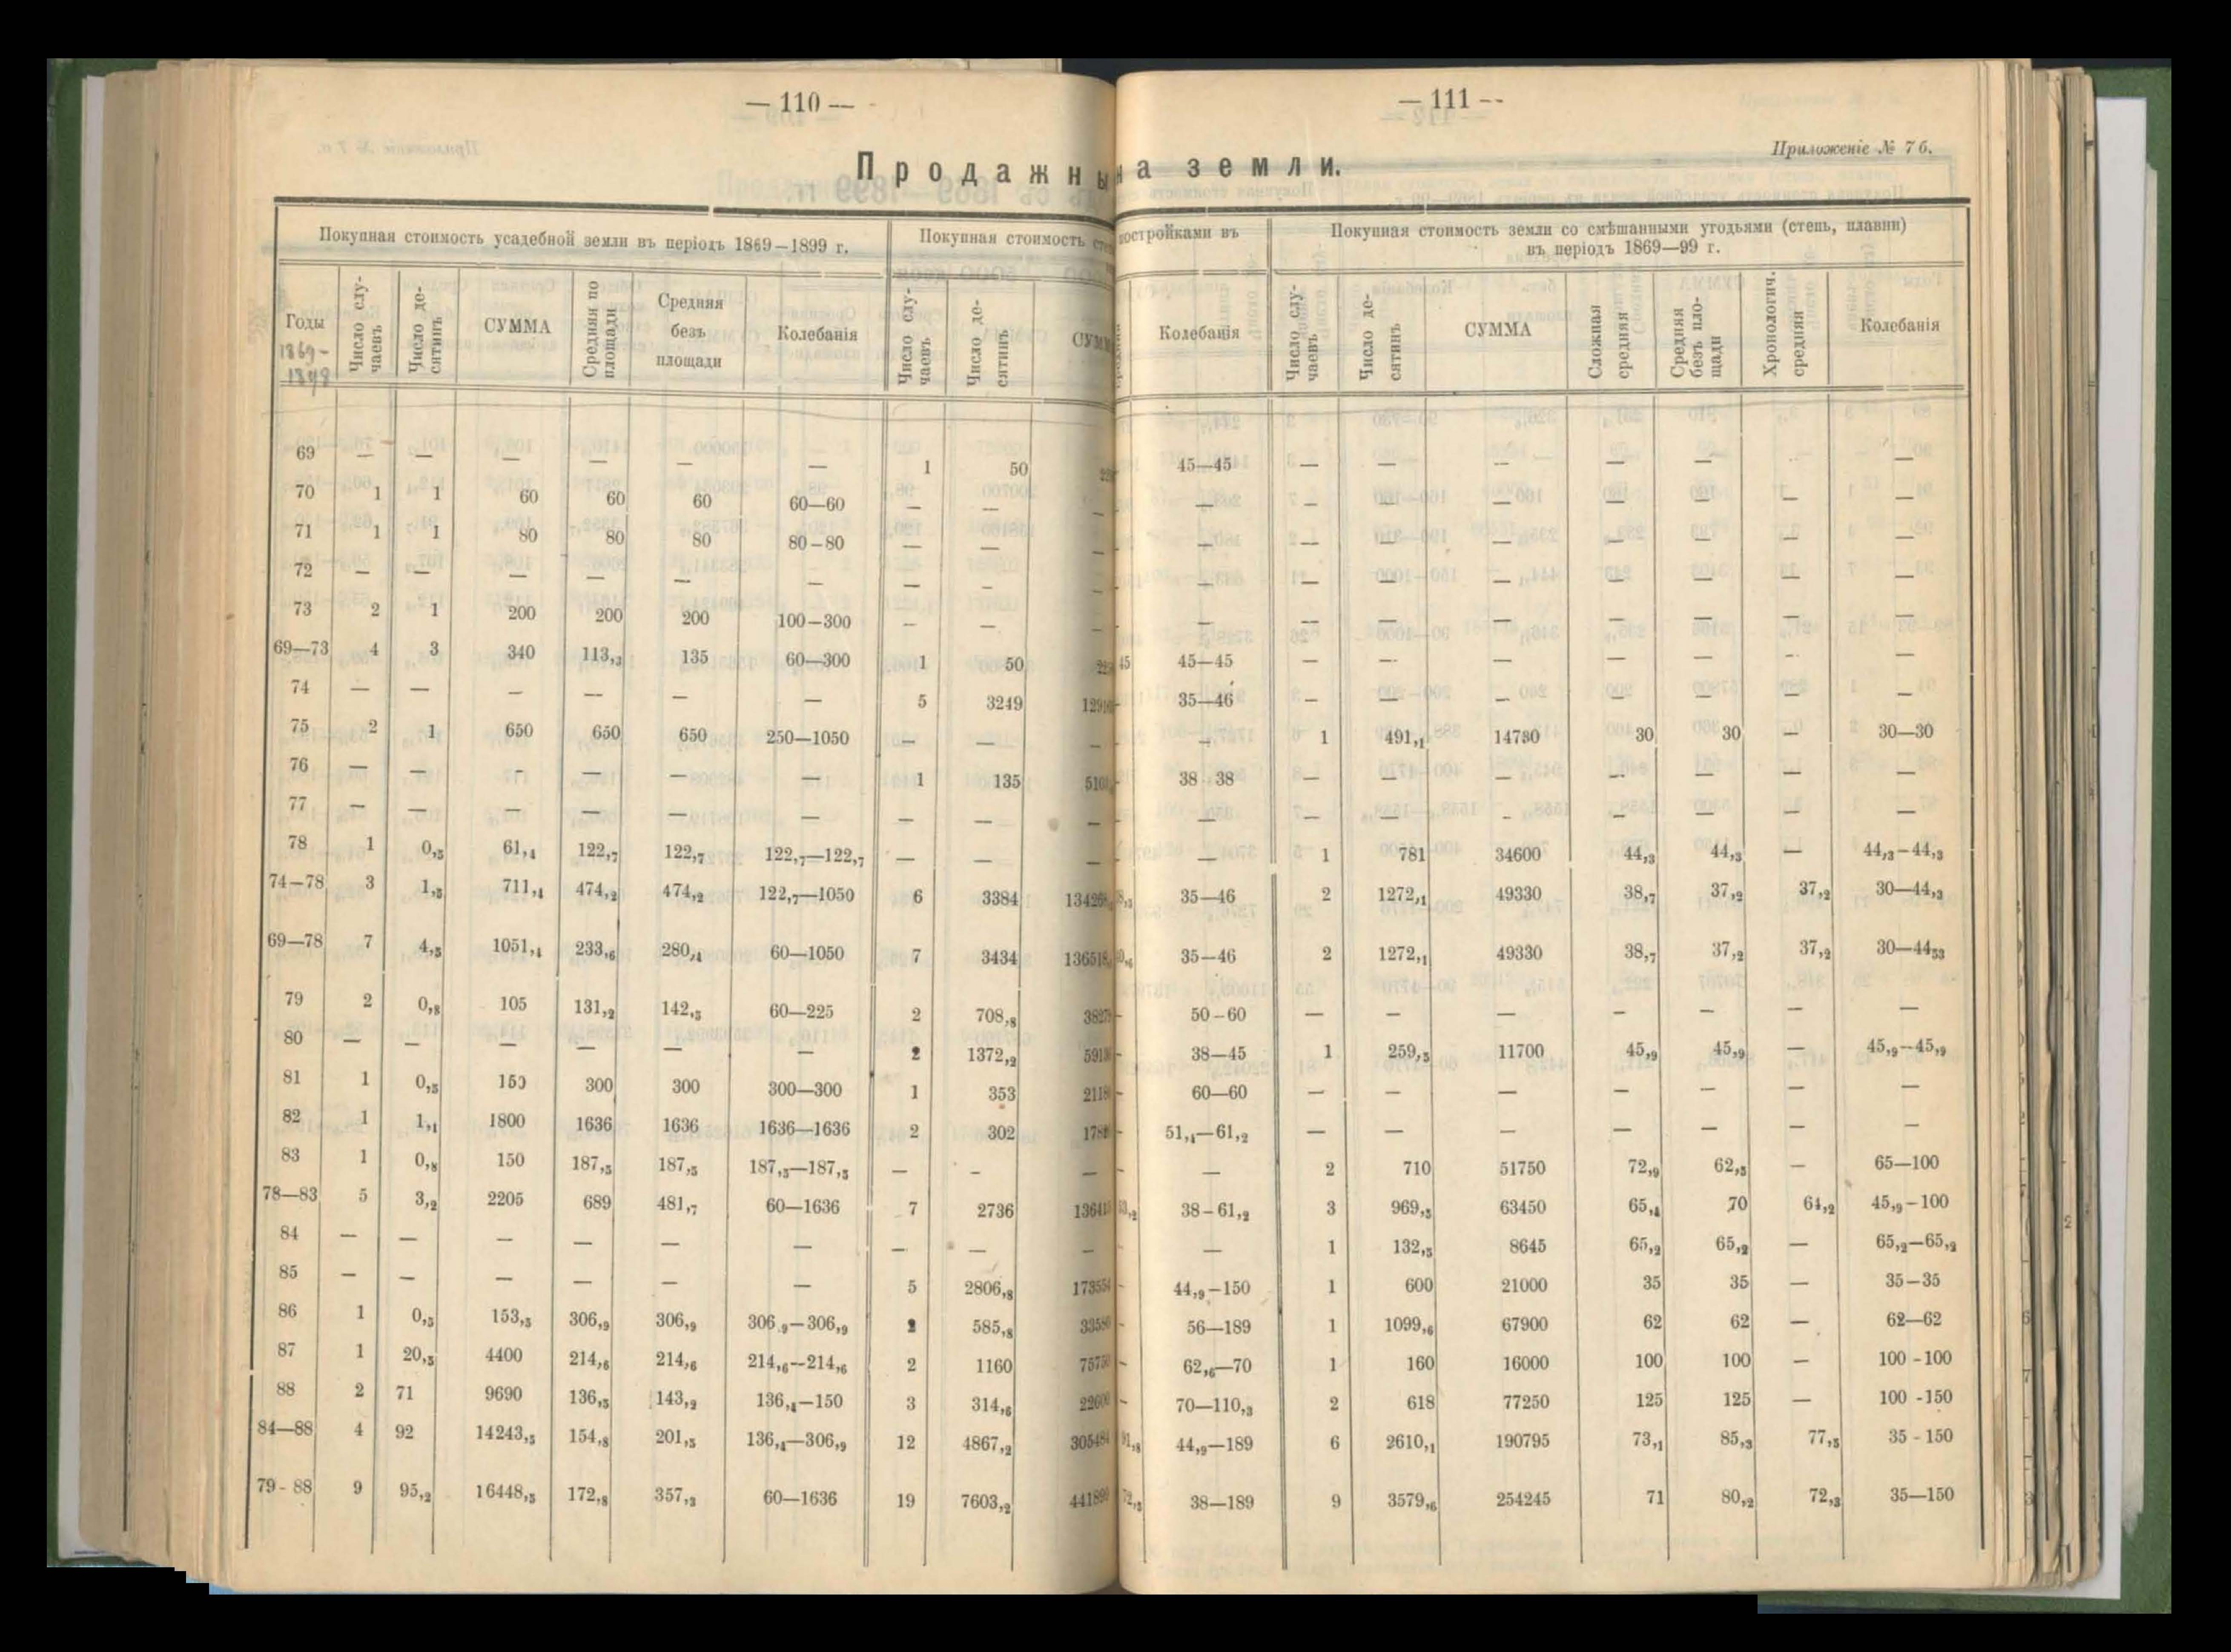 — 110 —
— 111 --
Приложеніе № 7 б.
Продажны на земли.
Покупная стоимость усадебной земли въ періодъ 1869—1899 г. | Покупная стоимость | постройками въ | Покупная стоимость земли со смѣшанными угодьями (степь, плавни)
въ періодъ 1869—99 г.
Годы 1869- | Число случаевъ | Число десятинъ | СУММА | Средняя по площади | Средняя безъ площади | Колебанія | Число случаевъ | Число десятинъ | Колебанія | Число случаевъ | Число десятинъ | СУММА | Сложная средняя | Средняя безъ площади | Хронологич. средняя | Колебанія
69 | — | — | — | — | — | — | 1 | 50 | 45—45 | — | — | — | — | — | — | —
70 | 1 | 1 | 60 | 60 | 60 | 60—60 | — | — | — | — | — | — | — | — | — | — | —
71 | 1 | 1 | 80 | 80 | 80 | 80-80 | — | — | — | — | — | — | — | — | — | — | —
72 | — | — | — | — | — | — | — | — | — | — | — | — | — | — | — | — | —
73 | 2 | 1 | 200 | 200 | 200 | 100—300 | — | — | — | — | — | — | — | — | — | — | —
69—73 | 4 | 3 | 340 | 113,3 | 135 | 60—300 | 1 | 50 | 45 | 45—45 | — | — | — | — | — | — | —
74 | — | — | — | — | — | — | 5 | 3249 | 35—46 | — | — | — | — | — | — | —
75 | 2 | 1 | 650 | 650 | 650 | 250—1050 | — | — | — | — | 1 | 491,1 | 14730 | 30 | 30 | — | 30—30
76 | — | — | - | — | — | — | 1 | 135 | 38-38 | — | — | — | — | — | — | —
77 | — | — | — | — | — | — | — | — | — | — | — | — | - | — | — | — | —
78 | 1 | 0,5 | 61,4 | 122,7 | 122,7 | 122,7—122,7 | — | — | — | — | 1 | 781 | 34600 | 44,3 | 44,3 | — | 44,3-44,3
74—78 | 3 | 1,5 | 711,4 | 474,2 | 474,2 | 122,7—1050 | 6 | 3384 | 35—46 | 2 | 1272,1 | 49330 | 38,7 | 37,2 | 37,2 | 30—44,3
69—78 | 7 | 4,5 | 1051,4 | 233,6 | 280,4 | 60—1050 | 7 | 3434 | 35—46 | 2 | 1272,1 | 49330 | 38,7 | 37,2 | 37,2 | 30—4453
79 | 2 | 0,8 | 105 | 131,2 | 142,5 | 60—225 | 2 | 708,8 | 50-60 | — | — | — | — | — | — | —
80 | — | — | — | — | — | — | 2 | 1372,2 | 38—45 | 1 | 259,5 | 11700 | 45,9 | 45,9 | — | 45,9--45,9
81 | 1 | 0,5 | 150 | 300 | 300 | 300—300 | 1 | 353 | 60—60 | — | — | — | — | — | — | —
82 | 1 | 1,1 | 1800 | 1636 | 1636 | 1636—1636 | 2 | 302 | 51,4—61,2 | — | — | — | — | — | — | —
83 | 1 | 0,8 | 150 | 187,5 | 187,5 | 187,5—187,5 | — | - | — | — | 2 | 710 | 51750 | 72,9 | 62,5 | — | 65—100
78—83 | 5 | 3,2 | 2205 | 689 | 481,7 | 60—1636 | 7 | 2736 | 38-61,2 | 3 | 969,5 | 63450 | 65,4 | 70 | 64,2 | 45,9-100
84 | — | — | — | — | — | — | — | — | — | — | 1 | 132,5 | 8645 | 65,2 | 65,2 | — | 65,2—65,2
85 | — | — | — | — | — | — | 5 | 2806,8 | 44,9-150 | 1 | 600 | 21000 | 35 | 35 | — | 35-35
86 | 1 | 0,5 | 153,5 | 306,9 | 306,9 | 306,9—306,9 | 2 | 585,8 | 56—189 | 1 | 1099,6 | 67900 | 62 | 62 | — | 62—62
87 | 1 | 20,5 | 4400 | 214,6 | 214,6 | 214,6--214,6 | 2 | 1160 | 62,6—70 | 1 | 160 | 16000 | 100 | 100 | — | 100-100
88 | 2 | 71 | 9690 | 136,5 | 143,2 | 136,4—150 | 3 | 314,6 | 70—110,3 | 2 | 618 | 77250 | 125 | 125 | — | 100-150
84—88 | 4 | 92 | 14243,5 | 154,8 | 201,5 | 136,4—306,9 | 12 | 4867,2 | 44,9—189 | 6 | 2610,1 | 190795 | 73,1 | 85,3 | 77,5 | 35-150
79-88 | 9 | 95,2 | 16448,5 | 172,8 | 357,3 | 60—1636 | 19 | 7603,2 | 38—189 | 9 | 3579,6 | 254245 | 71 | 80,2 | 72,3 | 35—150